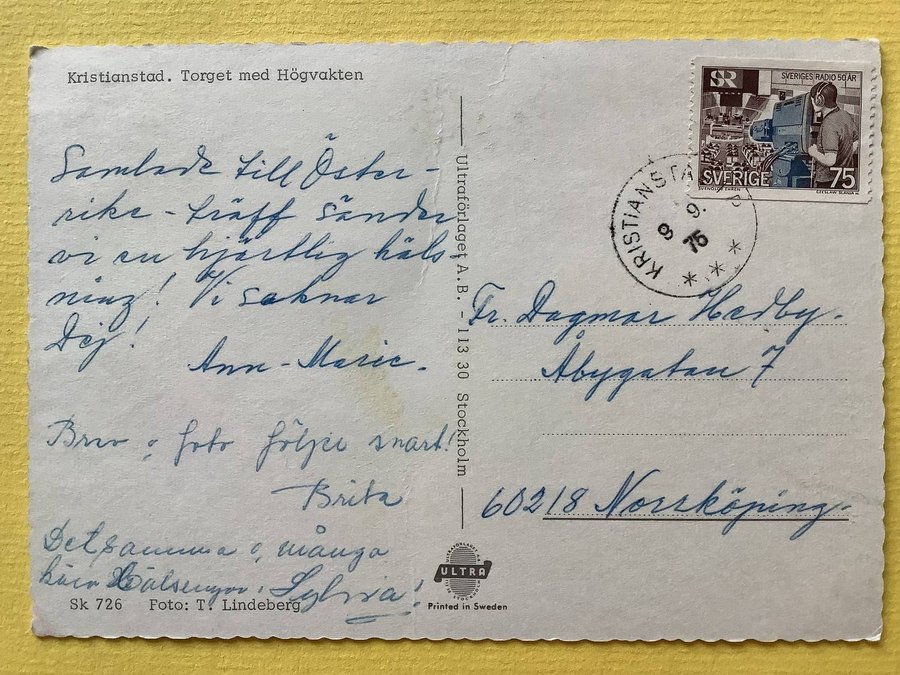 Kristianstad. Torget med Högvakten
Samlade till Öster-
rike-träff sänder
vi en hjärtlig häls-
ning! Vi saknar
Dej!
Ann-Marie.
Brev o. foto följer snart!
Brita
Detsamma o. många
kära Hälsningar, Sylvia!
Sk 726 Foto: T. Lindeberg
Ultraförlaget A.B. - 113 30 Stockholm
ULTRA
Printed in Sweden
SR
SVERIGES RADIO 50 ÅR
SVERIGE 75
CZESLAW SLANIA
KRISTIANSTAD
9 9.
75
Fr. Dagmar Hedby.
Åbygatan 7
60218 Norrköping.